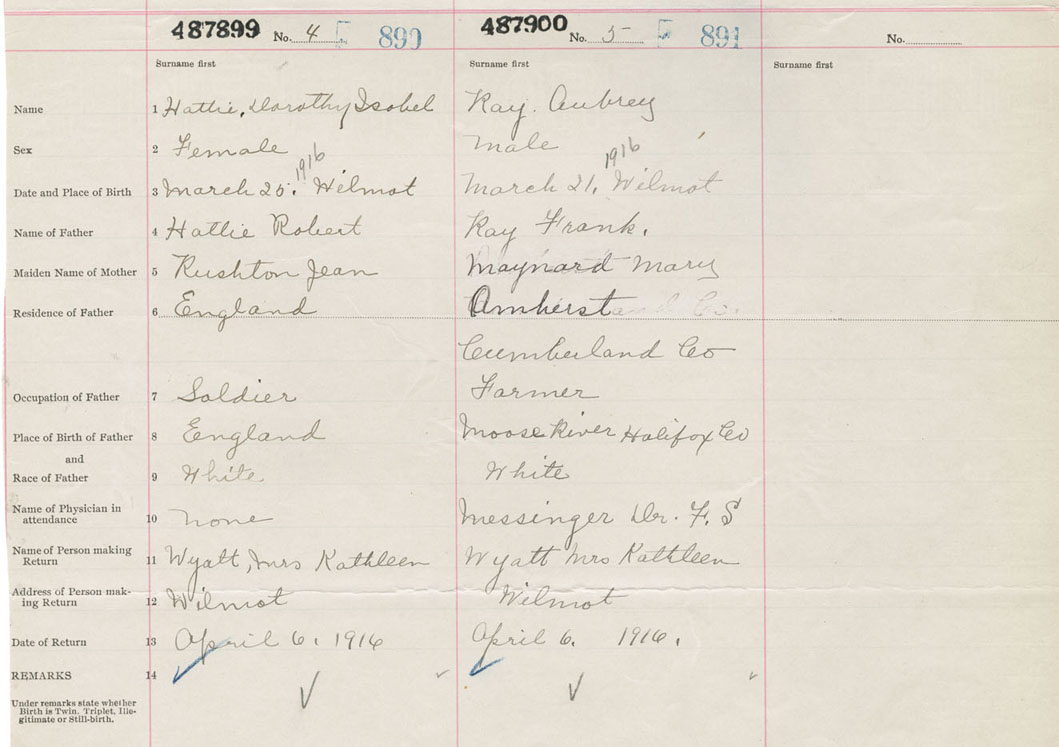 487899 No. 4 890 487900 No. 5 891 No.
Surname first Surname first Surname first
Name 1 Hattie, Dorothy Isobel Kay. Aubrey
Sex 2 Female Male
1916 1916
Date and Place of Birth 3 March 25. Wilmot March 21. Wilmot
Name of Father 4 Hattie Robert Kay Frank.
Maiden Name of Mother 5 Rushton Jean Maynard Mary
Residence of Father 6 England Amherst
Cumberland Co
Occupation of Father 7 Soldier Farmer
Place of Birth of Father 8 England Moose River Halifox Co
and
Race of Father 9 White White
Name of Physician in
attendance 10 None Messinger Dr. F. S
Name of Person making
Return 11 Wyatt, Mrs Kathleen Wyatt Mrs Kathleen
Address of Person mak-
ing Return 12 Wilmot Wilmot
Date of Return 13 April 6. 1916 April 6. 1916.
REMARKS 14
Under remarks state whether
Birth is Twin. Triplet, Ille-
gitimate or Still-birth.